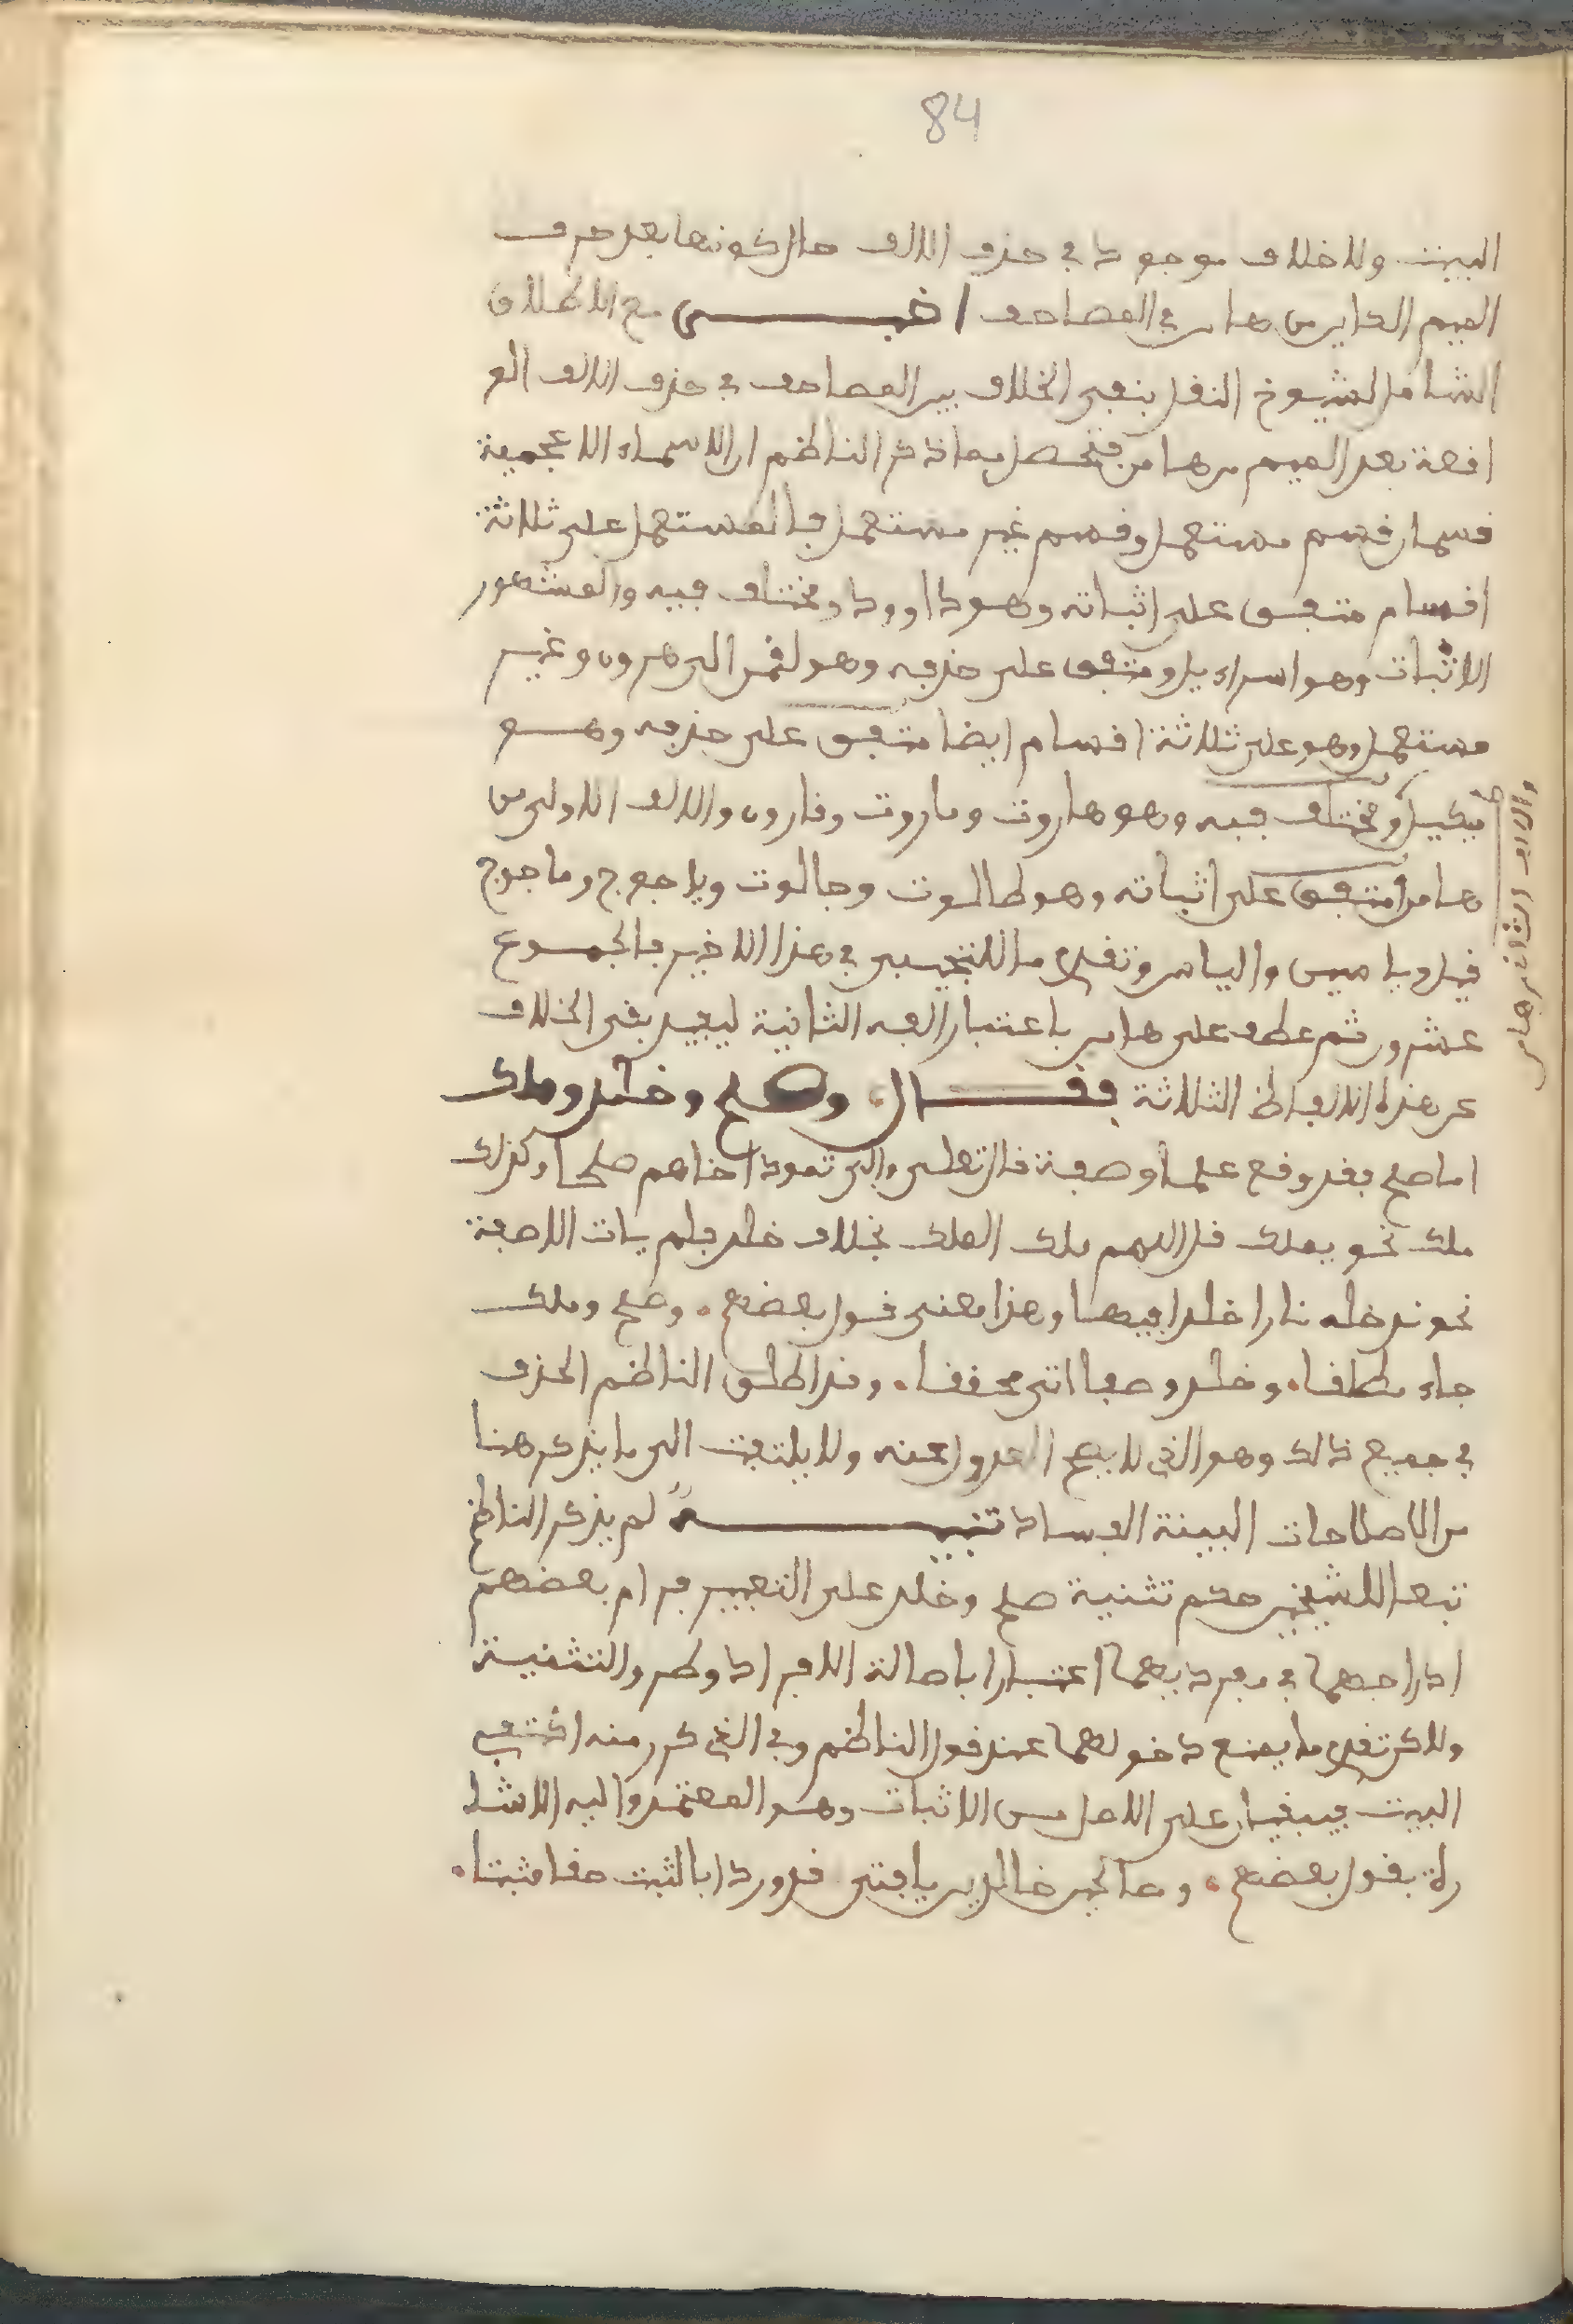 84
البيت ولا خلاف موجودا في حذف الالف حال كونها بعد حرف
الميم الكاين من هامن في المصاحف اخبـــــر مع الاطلاق
الشامل لشيوخ النقل بنفي الخلاف بين المصاحف في حذف الالف الو
اقعة بعد الميم من هامن فتحصل مما ذكر الناظم ان الاسماء الاعجمية
قسمان قسم مستعمل وقسم غير مستعمل فالمستعمل على ثلاثة
اقسام متفق على اثباته وهو داوود ومختلف فيه والمشهور
الاثبات وهو اسراءيل ومتفق على حذفه وهو لقمن الى هرون وغير
مستعمل وهو على ثلاثة اقسام ايضا متفق على حذفه وهـــو
ميكيل ومختلف فيه وهو هاروت وماروت وقارون والالف الاولى من
والالف الثانية من هامن
هامن ومتفق على اثباته وهو طالوت وجالوت وياجوج وماجوج
قيل وياسين والياس وتقدم ما للتجيبي في هذا الاخير فالمجموع
عشرون ثم عطف على هامن باعتبار الفه الثانية ليفيد نفي الخلاف
عن هذه الالفاظ الثلاثة فقـــــال وصلح وخلد وملك
اما صلح فقد وقع علما وصفة قال تعلى والى ثمود اخاهم صلحا وكذلك
ملك نحو يملك قل اللهم ملك الملك بخلاف خلد فلم يات الا صفة
نحو ندخله نارا خلدا فيها وهذا معنى قول بعضهم . وصلح وملك
جاء مطلقا . وخلد وصفا اتى محققا . وقد اطلق الناظم الحذف
في جميع ذالك وهو الذي لا يصح العدول عنه ولا يلتفت الى ما يذكر هنا
من الاصلاحات البينة الفساد تنبيـــــه لم يذكر الناظم
تبعا للشيخين حكم تثنية صلح وخلد على التعيين فرام بعضهم
ادراجهما في مفرديهما اعتبارا باصالة الافراد وطرو التثنية
ولاكن تقدم ما يمنع دخولهما عند قول الناظم وفي الذي كرر منه اكتفي
البيت فيبقيان على الاصل من الاثبات وهو المعتمد واليه الاشا
رة بقول بعضهم . وصالحين خالدين يا فتى قد وردا بالثبت حقا مثبتا .